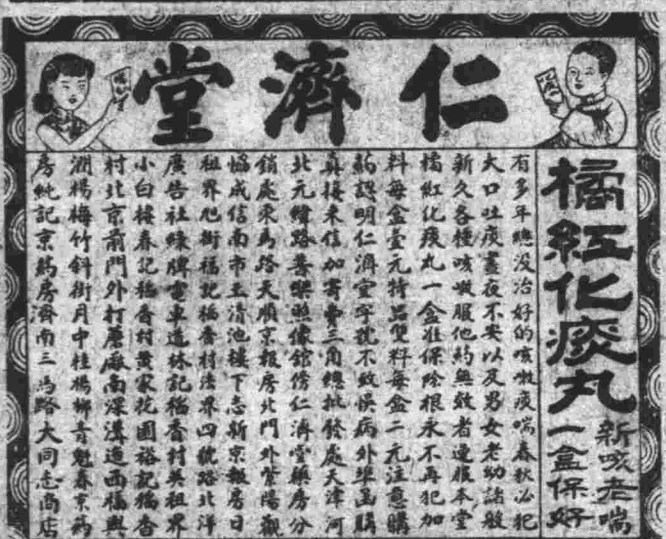 仁濟堂
橘紅化痰丸
新咳老喘
一盒保好
有多年總没治好的咳嗽痰喘春秋必犯
大口吐痰晝夜不安以及男女老幼諸般
新久各種咳嗽服他药無效者連服本堂
橘紅化痰丸一盒准保除根永不再犯加
料每盒壹元特品雙料每盒二元注意購
药認明仁濟堂字號不致悮病外埠函購
真接来信加寄費三角總批發處天津河
北元緯路善樂照像舘傍仁濟堂藥房分
銷處東馬路天順京報房北門外紫陽觀
協成信南市玉清池樓下志新京報房日
租界旭街福記稻香村法界四號路北洋
廣告社綠牌電車道林記稻香村英租界
小白樓春記稻香村黄家花園裕記稻香
村北京前門外打磨廠南深溝道西福興
潤楊梅竹斜街月中桂楊柳青魁春京药
房純記京药房濟南三馬路大同志商店